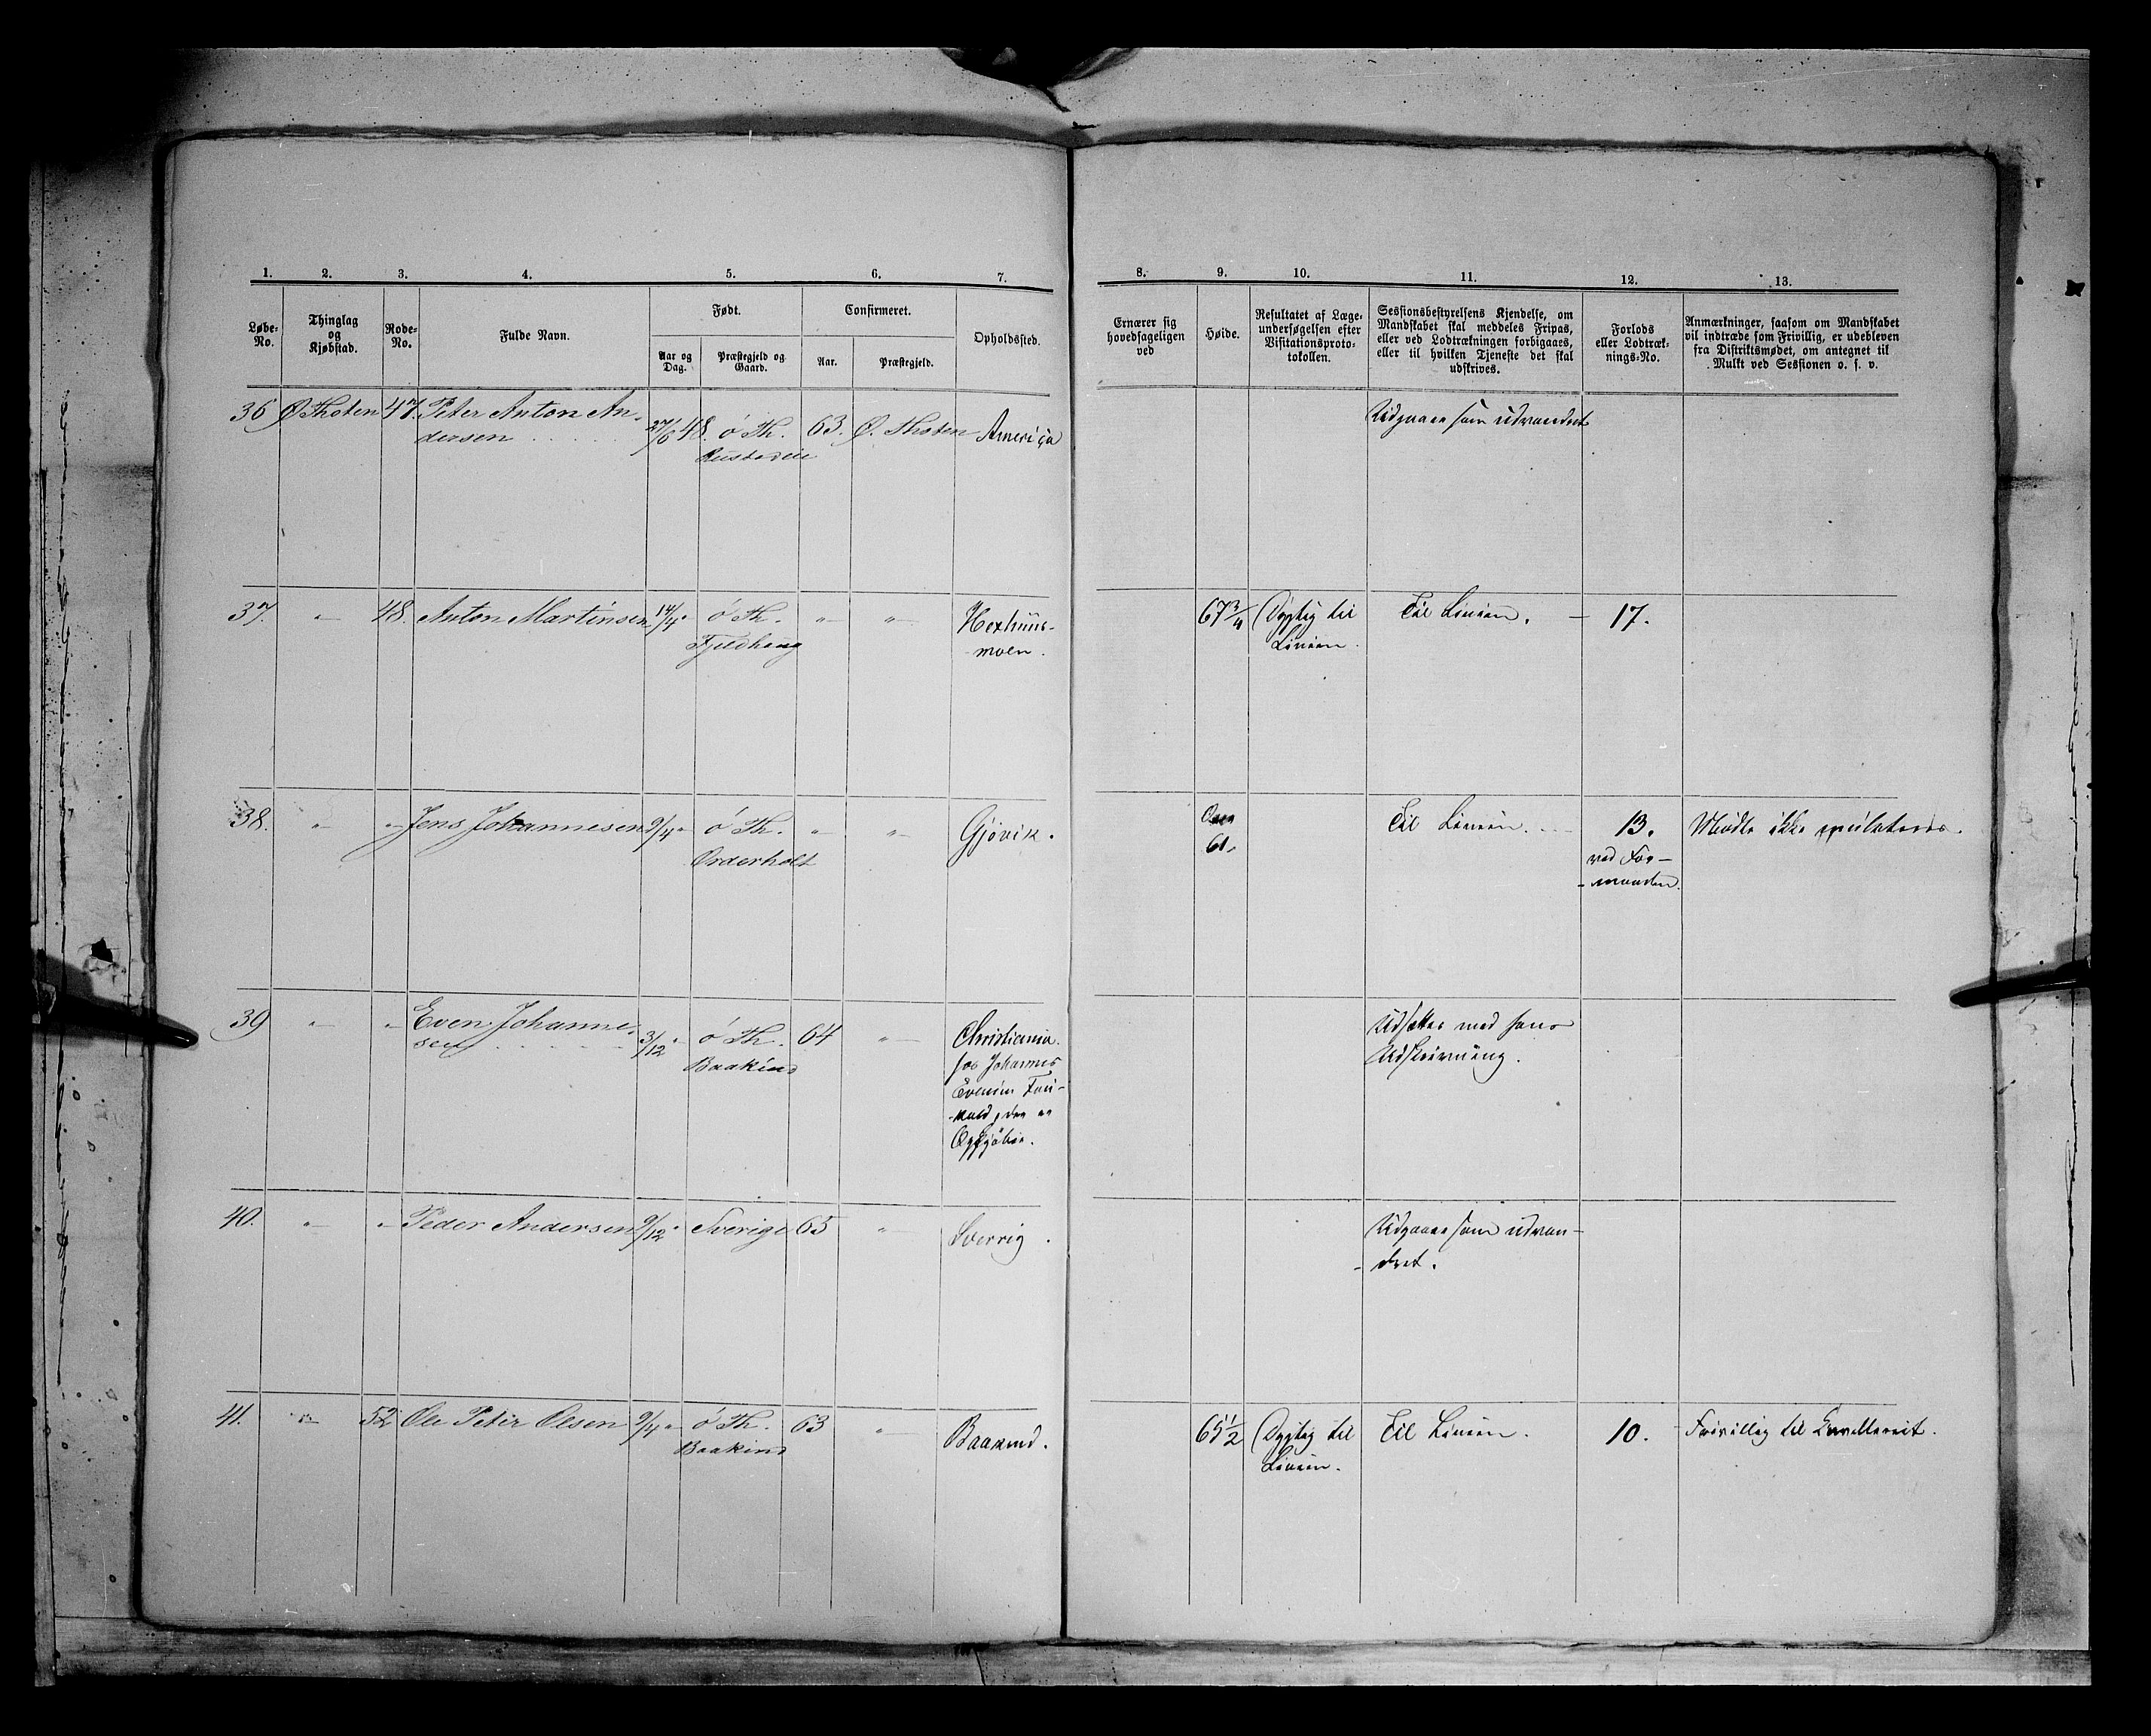 1. 2. 3. 4. 5. 6. 7.
Løbe-No. Thinglag og Kjøbstad. Rode-No. Fulde Navn. Født. Confirmeret. Opholdssted.
Aar og Dag. Præstegjeld og Gaard. Aar. Præstegjeld.
36 Ø Thoten 47. Peter Anton An-
dersen 27/6 48. ö Th. 63. Ø. Thoten America
37. " 48. Anton Martinsen 14/4 " ö Th. " "
Fjeldhaug
moen.
38. " " Jens Johannesen 9/4 " ö Th. " " Gjövik.
Orderholt
39 " " Even Johanne-
sen 3/12 " ö Th. 64 " Christiania.
Baakind
Johannes
40. " " Peder Andersen 9/12 " Sverige 65 " Sverrig.
41. " 52 Ole Peter Olsen 9/4 " ö Th. 63 " Baakind.
Baakind
8. 9. 10. 11. 12. 13.
Ernærer sig hovedsageligen ved
Høide.
Resultatet af Læge-
undersøgelsen efter
Visitationsproto-
tokollen.
Sessionsbestyrelsens Kjendelse, om
Mandskabet skal meddeles Fripas,
eller ved Lodtrækningen forbigaaes,
eller til hvilken Tjeneste det skal
udskrives.
Forlods
eller Lodtræk-
nings-No.
Anmærkninger, saasom om Mandskabet
vil indtræde som Frivillig, er udebleven
fra Distriktsmødet, om antegnet til
Mulkt ved Sessionen o. s. v.
Udgaaer som udvandret
67 3/4 Dygtig til Til Linien. 17.
Linien.
Over Til Linien. 13. Mødte ikke
61. ved For-
manden.
Udsættes med hans
Udskrivning.
Udgaaer som udvan-
dret.
65 1/2 Dygtig til Til Linien. 10. Frivillig til Cavalleriet.
Linien.